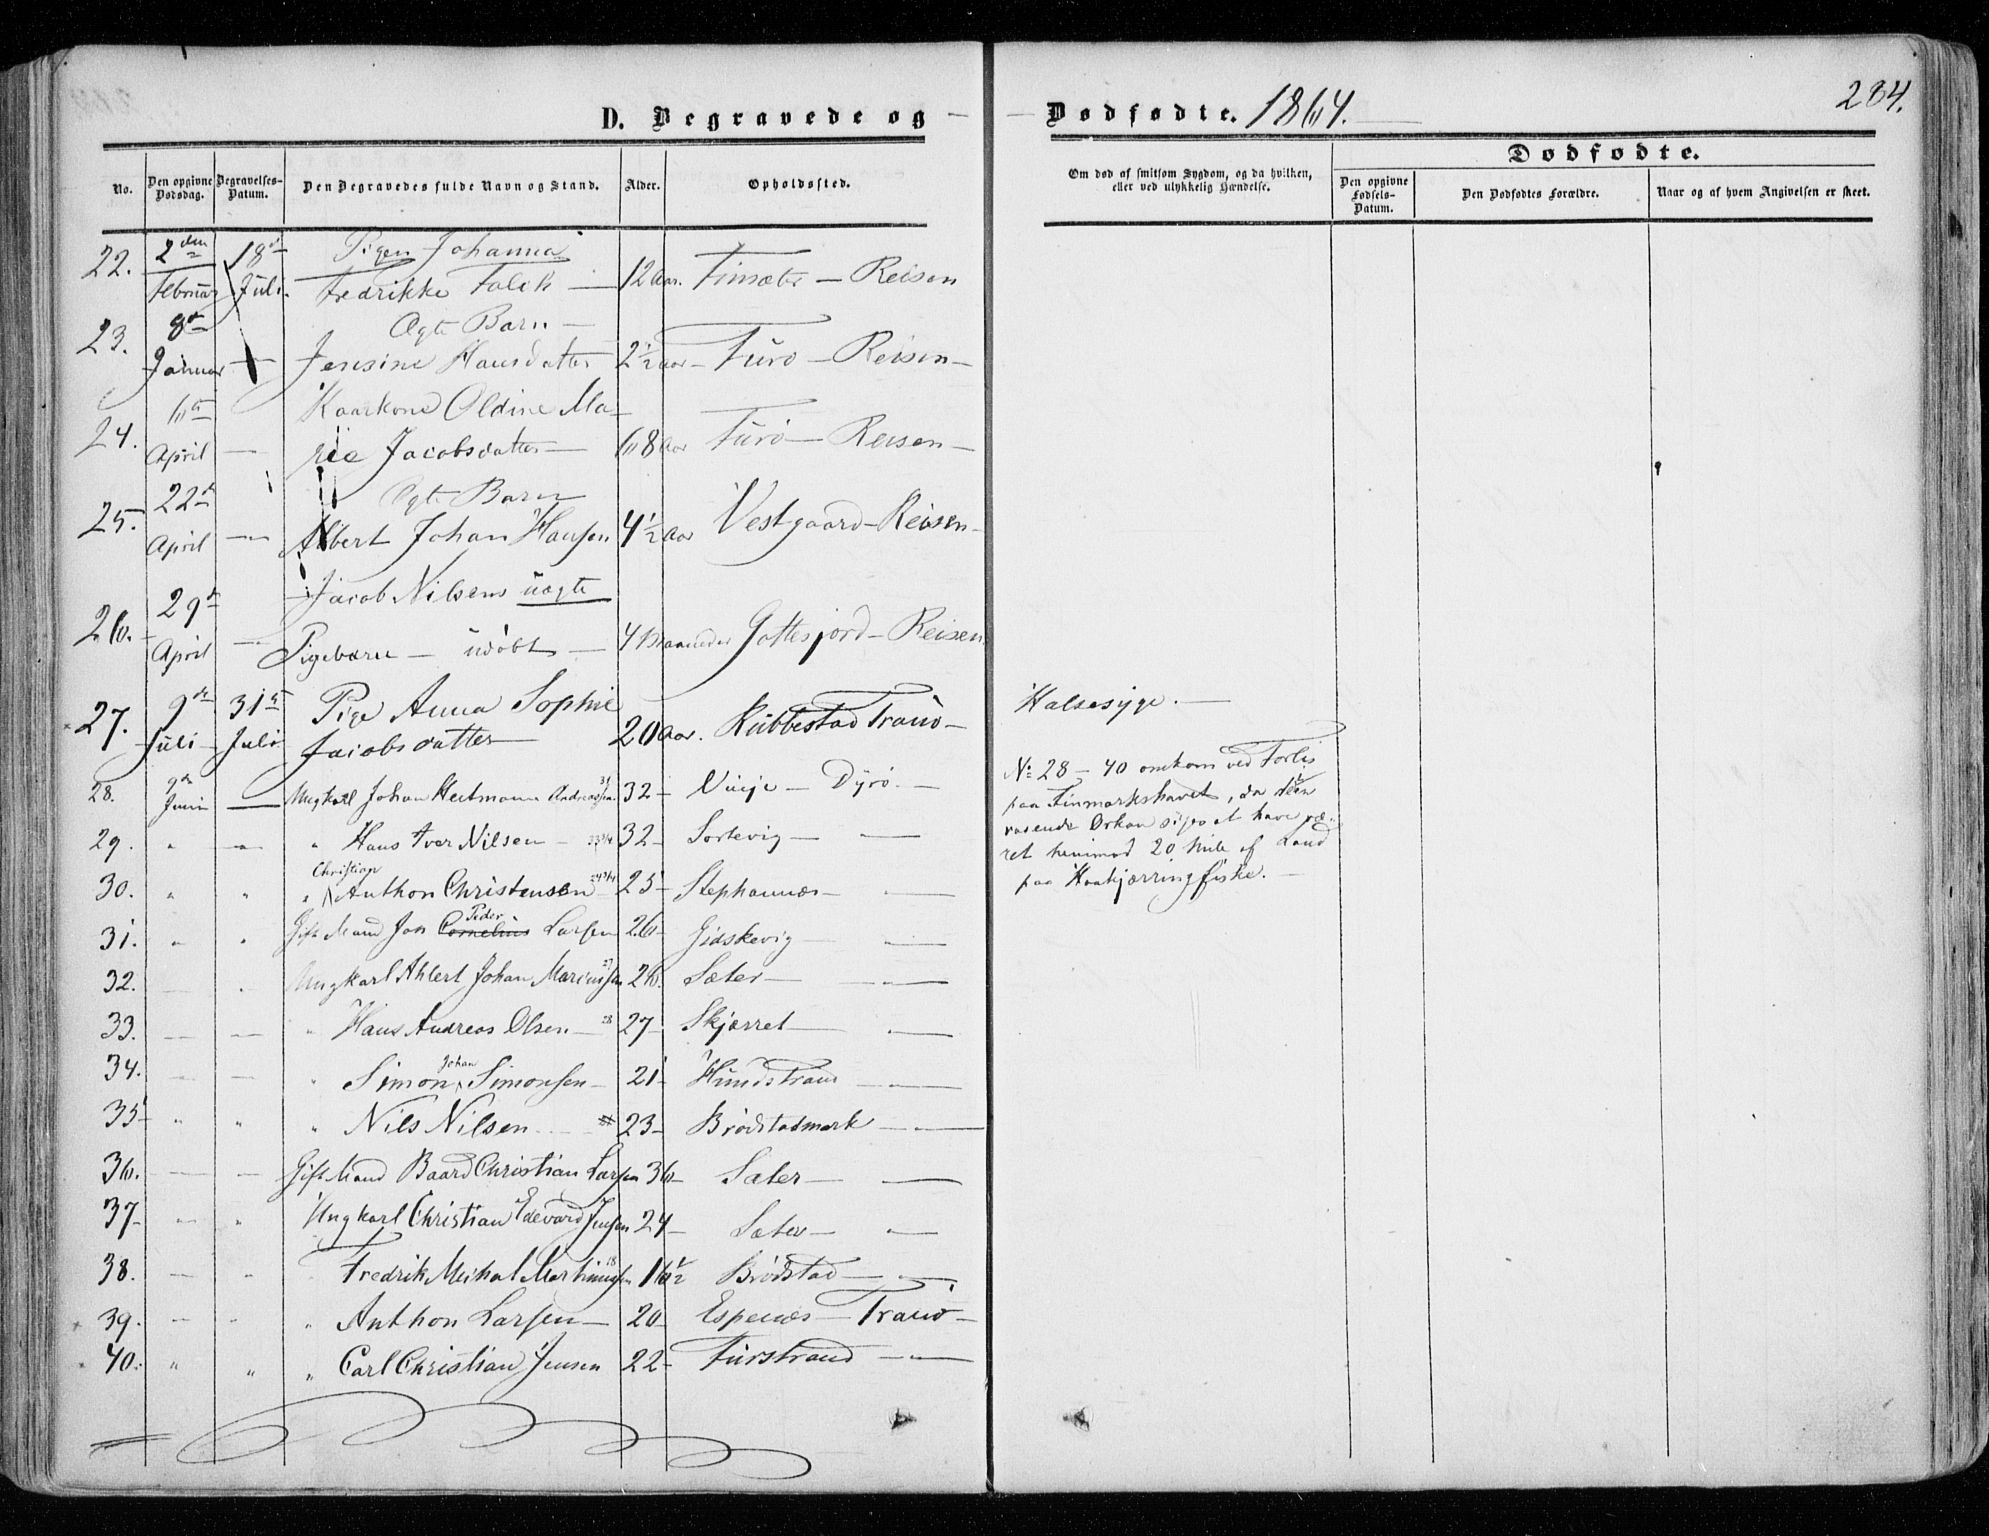 D. Begravede og — — Dødfødte. 1864.
284.
No.
Den opgivne Dødsdag.
Begravelses-Datum.
Den Begravedes fulde Navn og Stand.
Alder.
Opholdssted.
Om død af smitsom Sygdom, og da hvilken, eller ved ulykkelig Hændelse.
Dødfødte.
Den opgivne Fødsels-Datum.
Den Dødfødtes Forældre.
Naar og af hvem Angivelsen er skeet.
22. 2den 18de Pigen Johanna
Februar Juli. Fredrikke Falch — 12 Aar. Finsæter — Reisen
23. 8de Ægte Barn —
Januar — Jensine Hansdatter 2½ Aar — Furö — Reisen —
24. 6te Kaarkone Oldine Ma-
April — rie Jacobsdatter — 68 Aar Furö — Reisen —
25. 22de Ægte Barn
April — Albert Johan Hansen 4½ Aar Vestgaard — Reisen —
26. 29de Jacob Nilsens uægte
April — Pigebarn — udöbt — 4 Maaneder Gottesjord — Reisen
27. 9de 31te Pige Anna Sophie
Juli — Juli Jacobsdatter — 20 Aar. Kubbestad Tranö — Halsesyge. —
28. 9de Juni — Ungkarl Johan Heitmann Andreassen 31 32 — Vinje — Dyrö. —
29. " — " Hans Iver Nilsen — 33 3/4 32 — Sortevig — —
Christian
30. " " " Anthon Christensen 24 3/4 25 — Stephannæs — —
Peder
31. " " Gift Mand Jon Cornelius Larsen 26 — Gidskevig — —
32. — " Ungkarl Ahlert Johan Mariussen 27 26. Sæter — —
33. — — " Hans Andreas Olsen — 28 27 — Skjærret — —
Johan
34. — — " Simon Simonsen — 21 — Hundstrand — —
35 " " " Nils Nilsen — 23 — Brödstadmark — —
36. — — Gift Mand Baard Christian Larsen 36 — Sæter — —
37 — " Ungkarl Christian Edevard Jensen 24 — Sæter — —
38. — " Fredrik Michal Martinussen 18 16½ Brödstad — —
39. — " " Anthon Larsen — 20 — Espenæs — Tranö —
40. " " " Carl Christian Jensen 22 — Furstrand — —
No 28 — 40 omkom ved Forlis
paa Finmarkshavet, da den
rasende Orkan siges at have væ-
ret henimod 20 Mile af Land
paa Haakjærringfiske. —